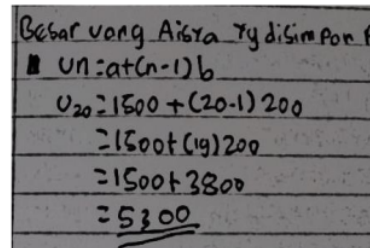 Besar uong Aisra yg disimpon
Un = a+(n-1)b
U20 = 1500 + (20-1) 200
= 1500 + (19) 200
= 1500 + 3800
= 5300